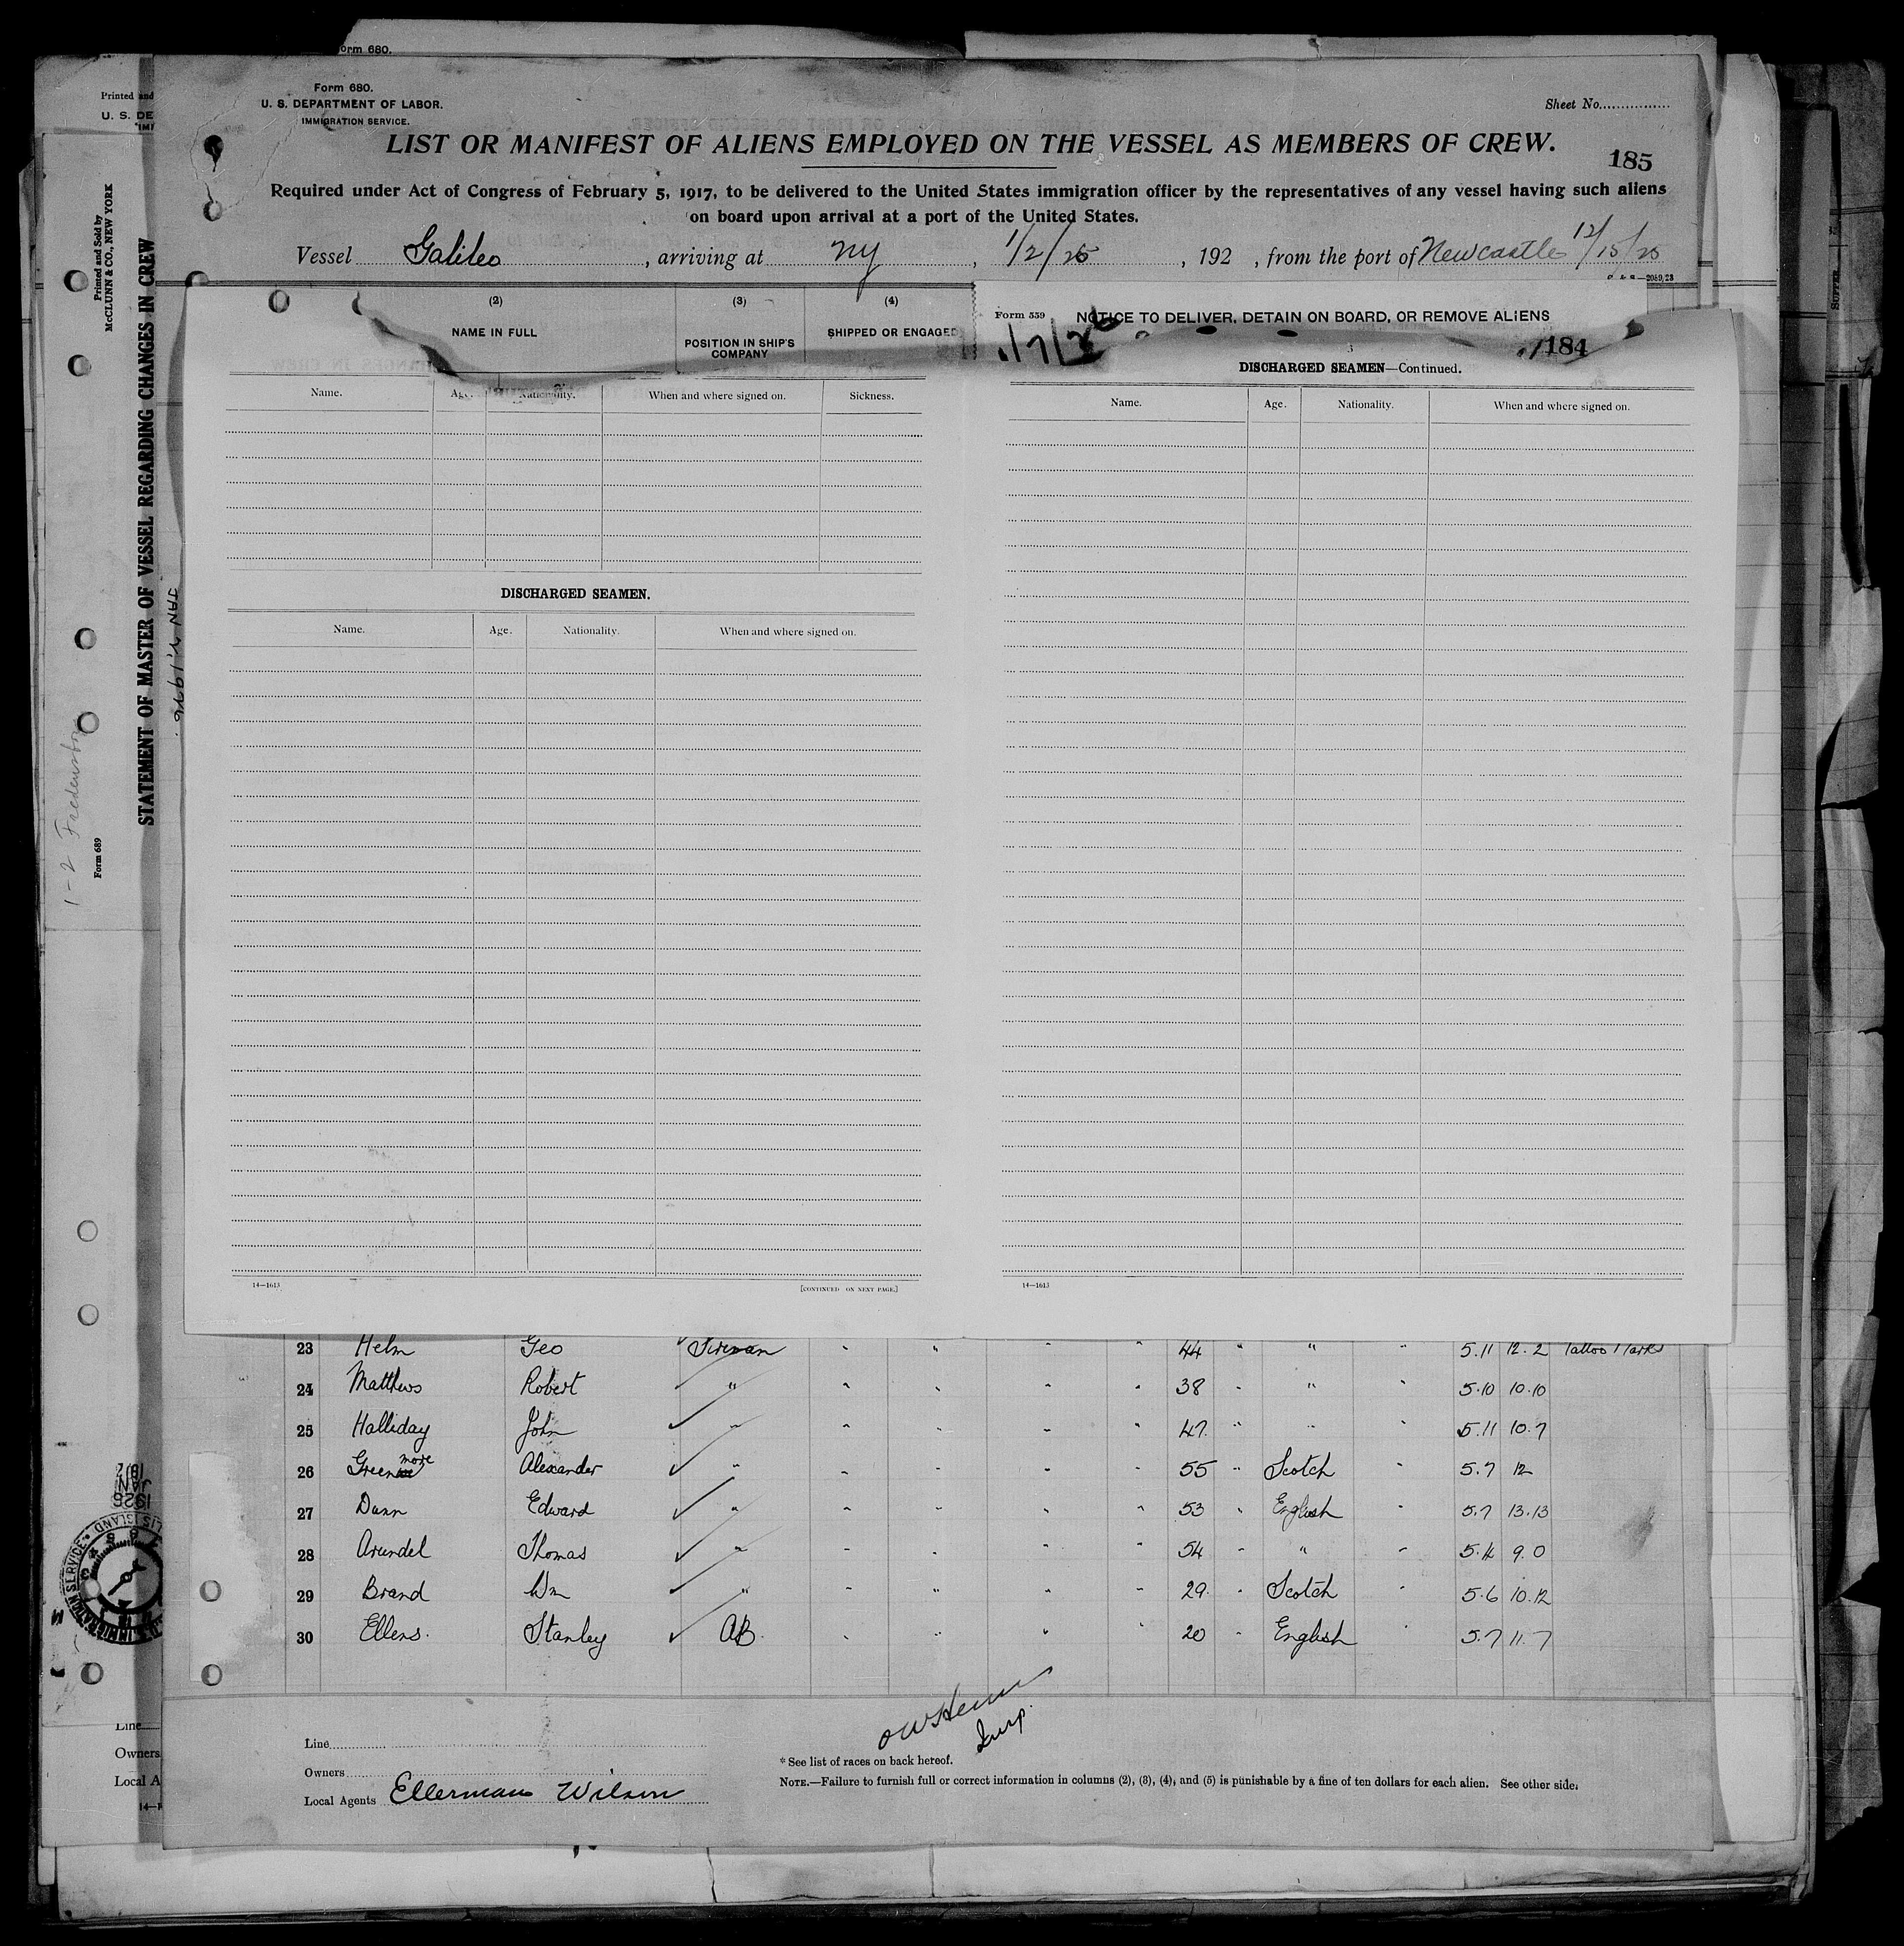 Form 680.
Form 680.
U. S. DEPARTMENT OF LABOR.
IMMIGRATION SERVICE.
Sheet No.
LIST OR MANIFEST OF ALIENS EMPLOYED ON THE VESSEL AS MEMBERS OF CREW.
185
Required under Act of Congress of February 5, 1917, to be delivered to the United States immigration officer by the representatives of any vessel having such aliens
on board upon arrival at a port of the United States.
Vessel Galileo, arriving at NY, 1/2/26, 192 , from the port of Newcastle 12/15/25
(2) (3) (4)
NAME IN FULL POSITION IN SHIP'S COMPANY SHIPPED OR ENGAGED
Form 559 NOTICE TO DELIVER, DETAIN ON BOARD, OR REMOVE ALIENS
184
3
DISCHARGED SEAMEN—Continued.
Name. Age. Nationality. When and where signed on. Sickness.
Name. Age. Nationality. When and where signed on.
DISCHARGED SEAMEN.
Name. Age. Nationality. When and where signed on.
14—1613 [CONTINUED ON NEXT PAGE.] 14—1613
23 Helm Geo Fireman " " " " 44 " " " 5.11 12.2 Tattoo Marks
24 Matthews Robert " " " " " 38 " " " 5.10 10.10
25 Halliday John " " " " " 47 " " " 5.11 10.7
26 Green more Alexander " " " " " 55 " Scotch " 5.7 12
27 Dunn Edward " " " " " 53 " English " 5.7 13.13
28 Arundel Thomas " " " " " 54 " " " 5.4 9.0
29 Brand Wm " " " " " 29 " Scotch " 5.6 10.12
30 Ellens Stanley AB " " " " 20 " English " 5.7 11.7
Line
Owners
Local Agents Ellermans Wilson
Insp.
* See list of races on back hereof.
NOTE.—Failure to furnish full or correct information in columns (2), (3), (4), and (5) is punishable by a fine of ten dollars for each alien. See other side.
Printed and
U. S. DE
Printed and Sold by
McCLUNN & CO., NEW YORK
STATEMENT OF MASTER OF VESSEL REGARDING CHANGES IN CREW
JAN 2, 1926
Form 689
Line
Owners
Local A